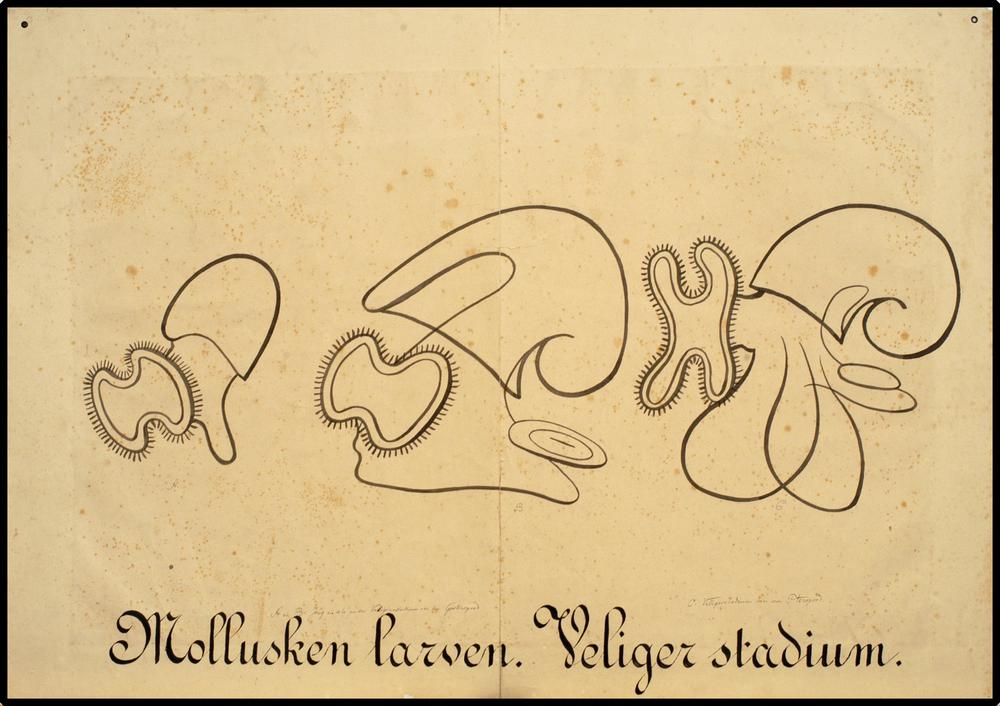 A
B
C
A en B. Jong en Veligerstadium van een Gastropood
C. Veligerstadium van een Pteropood
Mollusken larven. Veliger stadium.